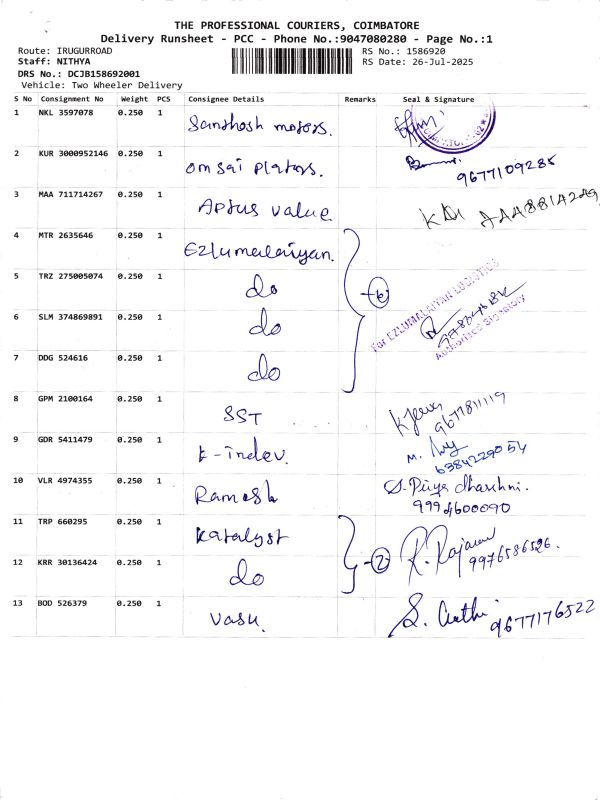 THE PROFESSIONAL COURIERS, COIMBATORE
Delivery Runsheet - PCC - Phone No.:9047080280 - Page No.:1
Route: IRUGURROAD
RS No.: 1586920
Staff: NITHYA
RS Date: 26-Jul-2025
DRS No.: DCJB158692001
Vehicle: Two Wheeler Delivery
S No Consignment No Weight PCS Consignee Details Remarks Seal & Signature
1 NKL 3597078 0.250 1 Santhosh motors.
2 KUR 3000952146 0.250 1 om sai plators. 9677109285
3 MAA 711714267 0.250 1 Aptus value
4 MTR 2635646 0.250 1 Ezlumalaiyan.
5 TRZ 275005074 0.250 1 do
6 SLM 374869891 0.250 1 do
For EZLUMALAIYAN LOGISTICS
Authorised Signatory
7 DDG 524616 0.250 1 do
8 GPM 2100164 0.250 1 SST 9677811119
9 GDR 5411479 0.250 1 k-indev. 6384229054
10 VLR 4974355 0.250 1 Ramesh S. Priya dharshni.
9994600090
11 TRP 660295 0.250 1 Katalyst R. Rajan
9976586526.
12 KRR 30136424 0.250 1 do 2
13 BOD 526379 0.250 1 vasu. S. 9677176522